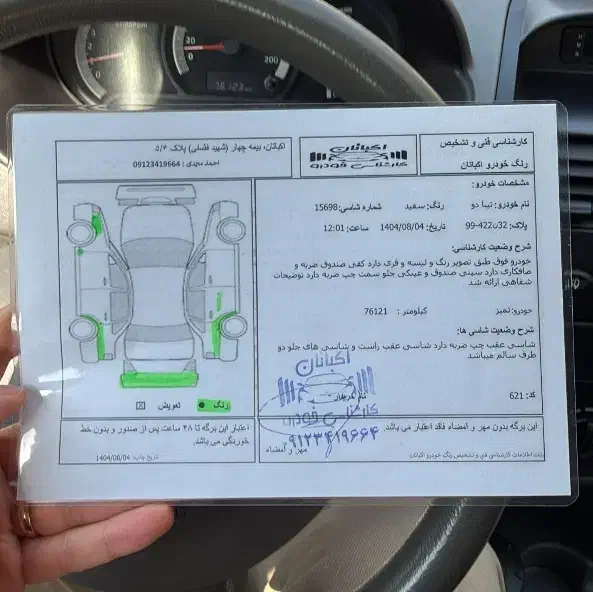 کارشناسی فنی و تشخیص
رنگ خودرو اکباتان
اکباتان
کارشناسی خودرو
اکباتان، بیمه چهار (شهید فلسفی) پلاک ۵/۶
09123419664
مشخصات خودرو:
نام خودرو: تیبا دو رنگ: سفید شماره شاسی: 15698
پلاک: تاریخ: 1404/08/04 ساعت: 12:01
شرح وضعیت کارشناسی:
خودرو فوق طبق تصویر رنگ و لیسه و فری دارد کفی صندوق ضربه و
صافکاری دارد سینی صندوق و عینکی جلو سمت چپ ضربه دارد توضیحات
شفاهی ارائه شد
خودرو: تمیز کیلومتر : 76121
شرح وضعیت شاسی ها:
شاسی عقب چپ ضربه دارد شاسی عقب راست و شاسی های جلو دو
طرف سالم میباشد
کد: 621
نام خریدار
اکباتان
کارشناسی خودرو
۰۹۱۲۳۴۱۹۶۶۴
مهر و امضاء
این برگه بدون مهر و امضاء فاقد اعتبار می باشد.
ثبت اطلاعات کارشناسی فنی و تشخیص رنگ خودرو اکباتان
رنگ
تعویض
اعتبار این برگه تا ۴۸ ساعت پس از صدور و بدون خط
خوردگی می باشد.
تاریخ چاپ: 1404/08/04
200